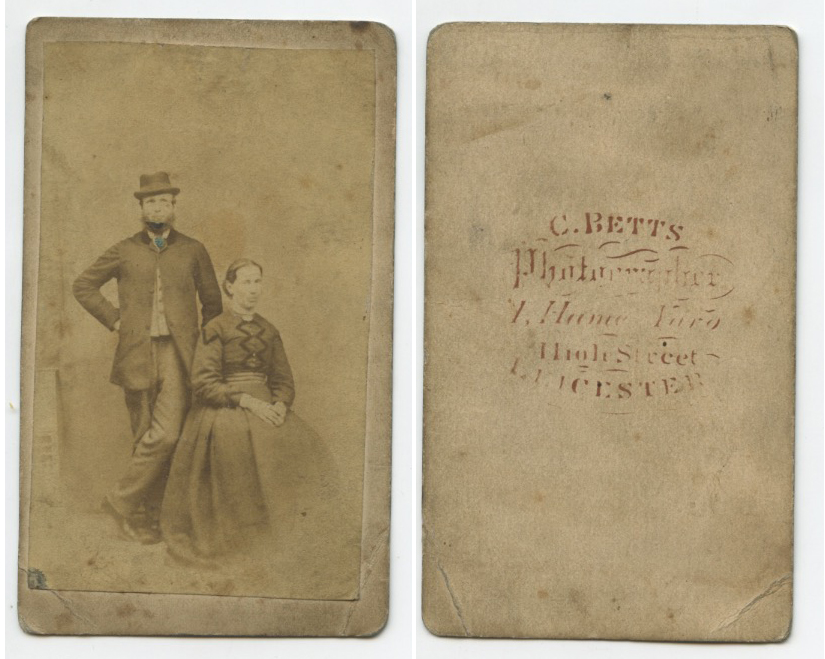 C. BETTS
Photographer
High Street
LEICESTER